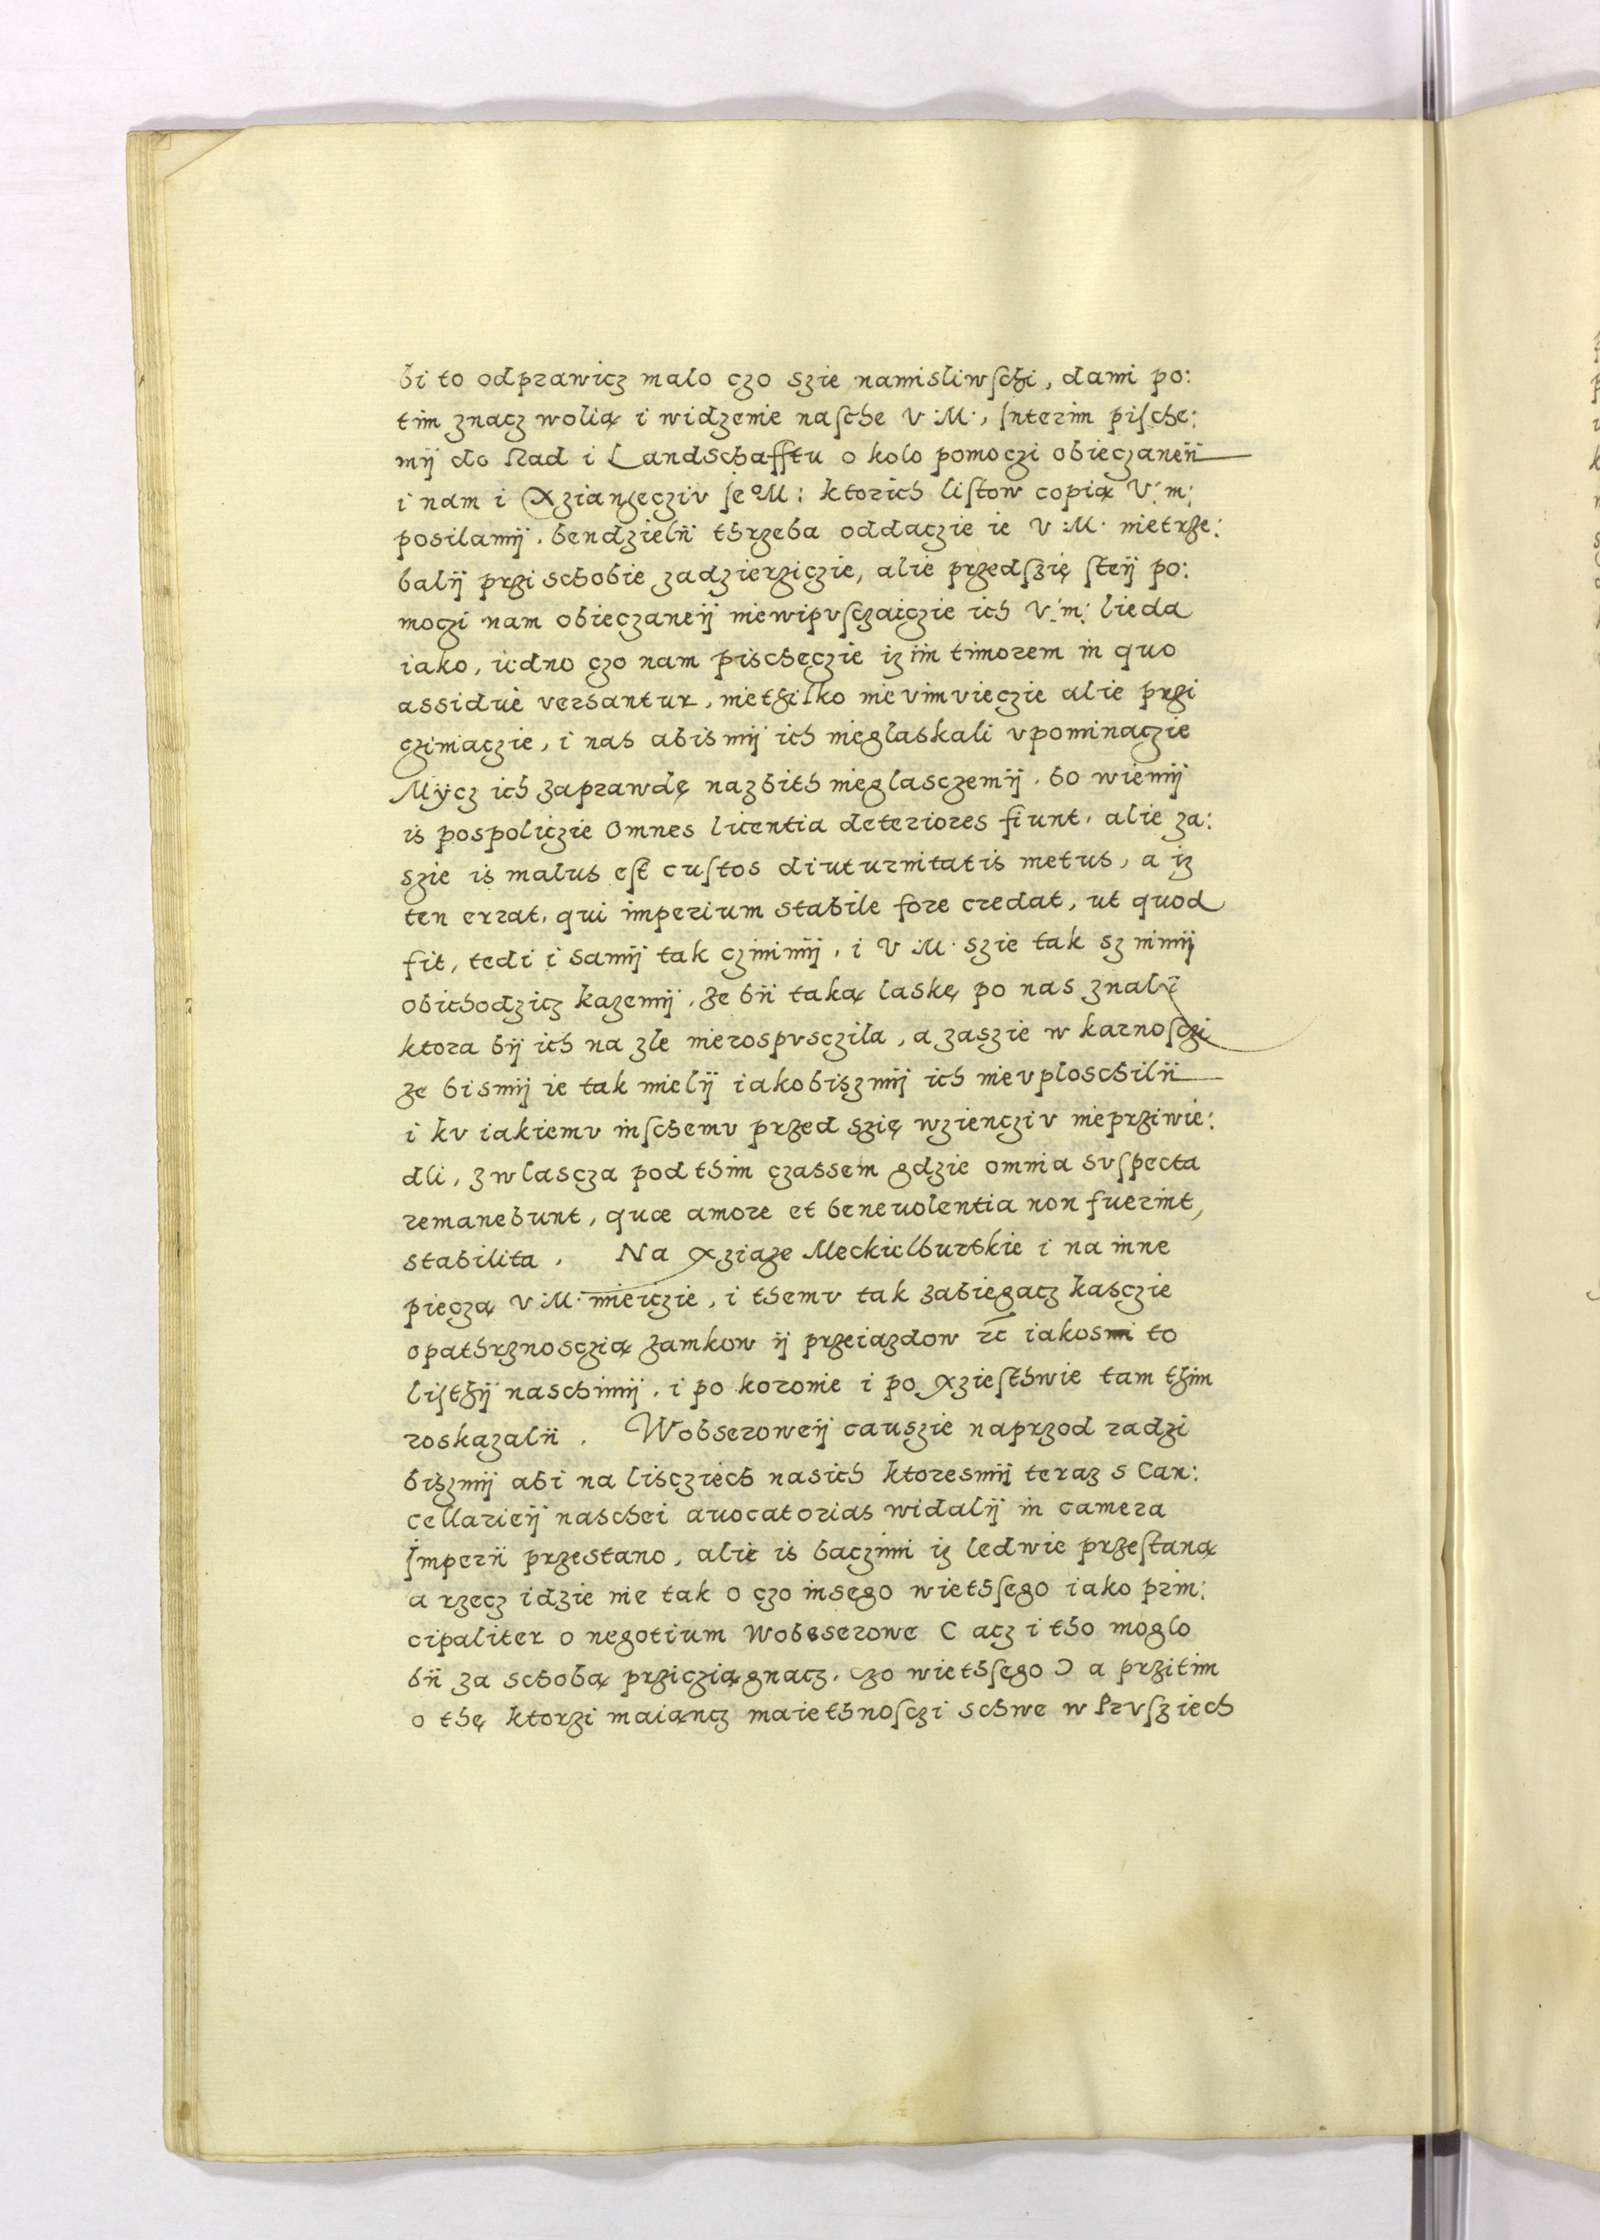 bi to odprawicz malo czo szie namisliwschi, dami po:
tim znacz wolią i widzenie nasche V: M:, Interim pische:
mÿ do Rad i Landschafftu o kolo pomoczi obieczaneÿ
i nam i Xziąnżęcziv Je°M: ktorich listow copią V: m:
posilamÿ. bendzielÿ thrzeba oddaczie ie V: M: nietrze:
balÿ przi schobie zadzierziczie, alie przedszię steÿ po:
moczi nam obieczaneÿ niewipvsczaiczie ich V: m: lieda
iako, iedno czo nam pischeczie iz im timorem in quo
assidue versantur, niethilko nie vimvieczie alie przi
cziniaczie, i nas abismÿ ich nieglaskali vpominaczie
Mÿcz ich zaprawdę nazbith nieglasczemÿ. bo wiemÿ
is pospoliczie Omnes licentia deteriores fiunt, alie za:
szie is malus est custos diuturnitatis metus, a iz
ten errat, qui imperium stabile fore credat, ut quod
fit, tedi i samÿ tak czinimÿ, i V: M: szie tak sz nimÿ
obichodzicz kazemÿ. ze bÿ taką laskę po nas znalÿ
ktora bÿ ich na zle nierospvsczila, a zaszie w karnosczi
ze bismÿ ie tak mielÿ iakobiszmÿ ich nievploschilÿ
i kv iakiemv inschemv przed szię wziencziv nieprziwie:
dli, zwlascza pod thim czassem gdzie omnia svspecta
remanebunt, quæ amore et beneuolentia non fuerint,
stabilita. Na Xziąze Meckielburskie i na inne
pieczą V: M: mieiczie, i themv tak zabiegacz kasczie
opathrznosczią zamkow ÿ przeiazdow ꝛc̃ iakosmi to
listhÿ naschimÿ. i po koronie i po Xziesthwie tam thim
roskazalÿ. Wobseroweÿ causzie naprzod radzi
biszmÿ abi na liscziech nasich ktoresmÿ teraz s Can:
cellarieÿ naschei auocatorias widalÿ in camera
Imperii przestano, alie is baczimi iz ledwie przestaną
a rzecz idzie nie tak o czo insego wiethsego iako prin:
cipaliter o negotium Wobeserowe C acz i tho moglo
bÿ za schobą przicziągnacz. czo wiethsego Ɔ a przitim
o thę ktorzi maiąncz maiethnosczi schwe w Prvsziech